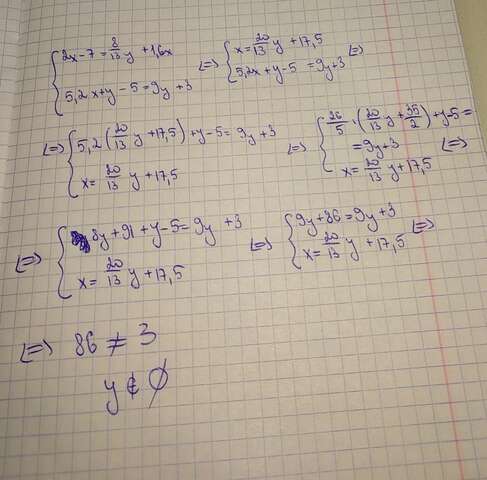 { 2x - 7 = 8/13 y + 1,6x
5,2x + y - 5 = 9y + 3
<=> { x = 20/13 y + 17,5
5,2x + y - 5 = 9y + 3 <=>
<=> { 5,2 (20/13 y + 17,5) + y - 5 = 9y + 3
x = 20/13 y + 17,5
<=> { 26/5 · (20/13 y + 35/2) + y - 5 =
= 9y + 3
x = 20/13 y + 17,5 <=>
<=> { 8y + 91 + y - 5 = 9y + 3
x = 20/13 y + 17,5
<=> { 9y + 86 = 9y + 3
x = 20/13 y + 17,5 <=>
<=> 86 ≠ 3
y ∉ ∅